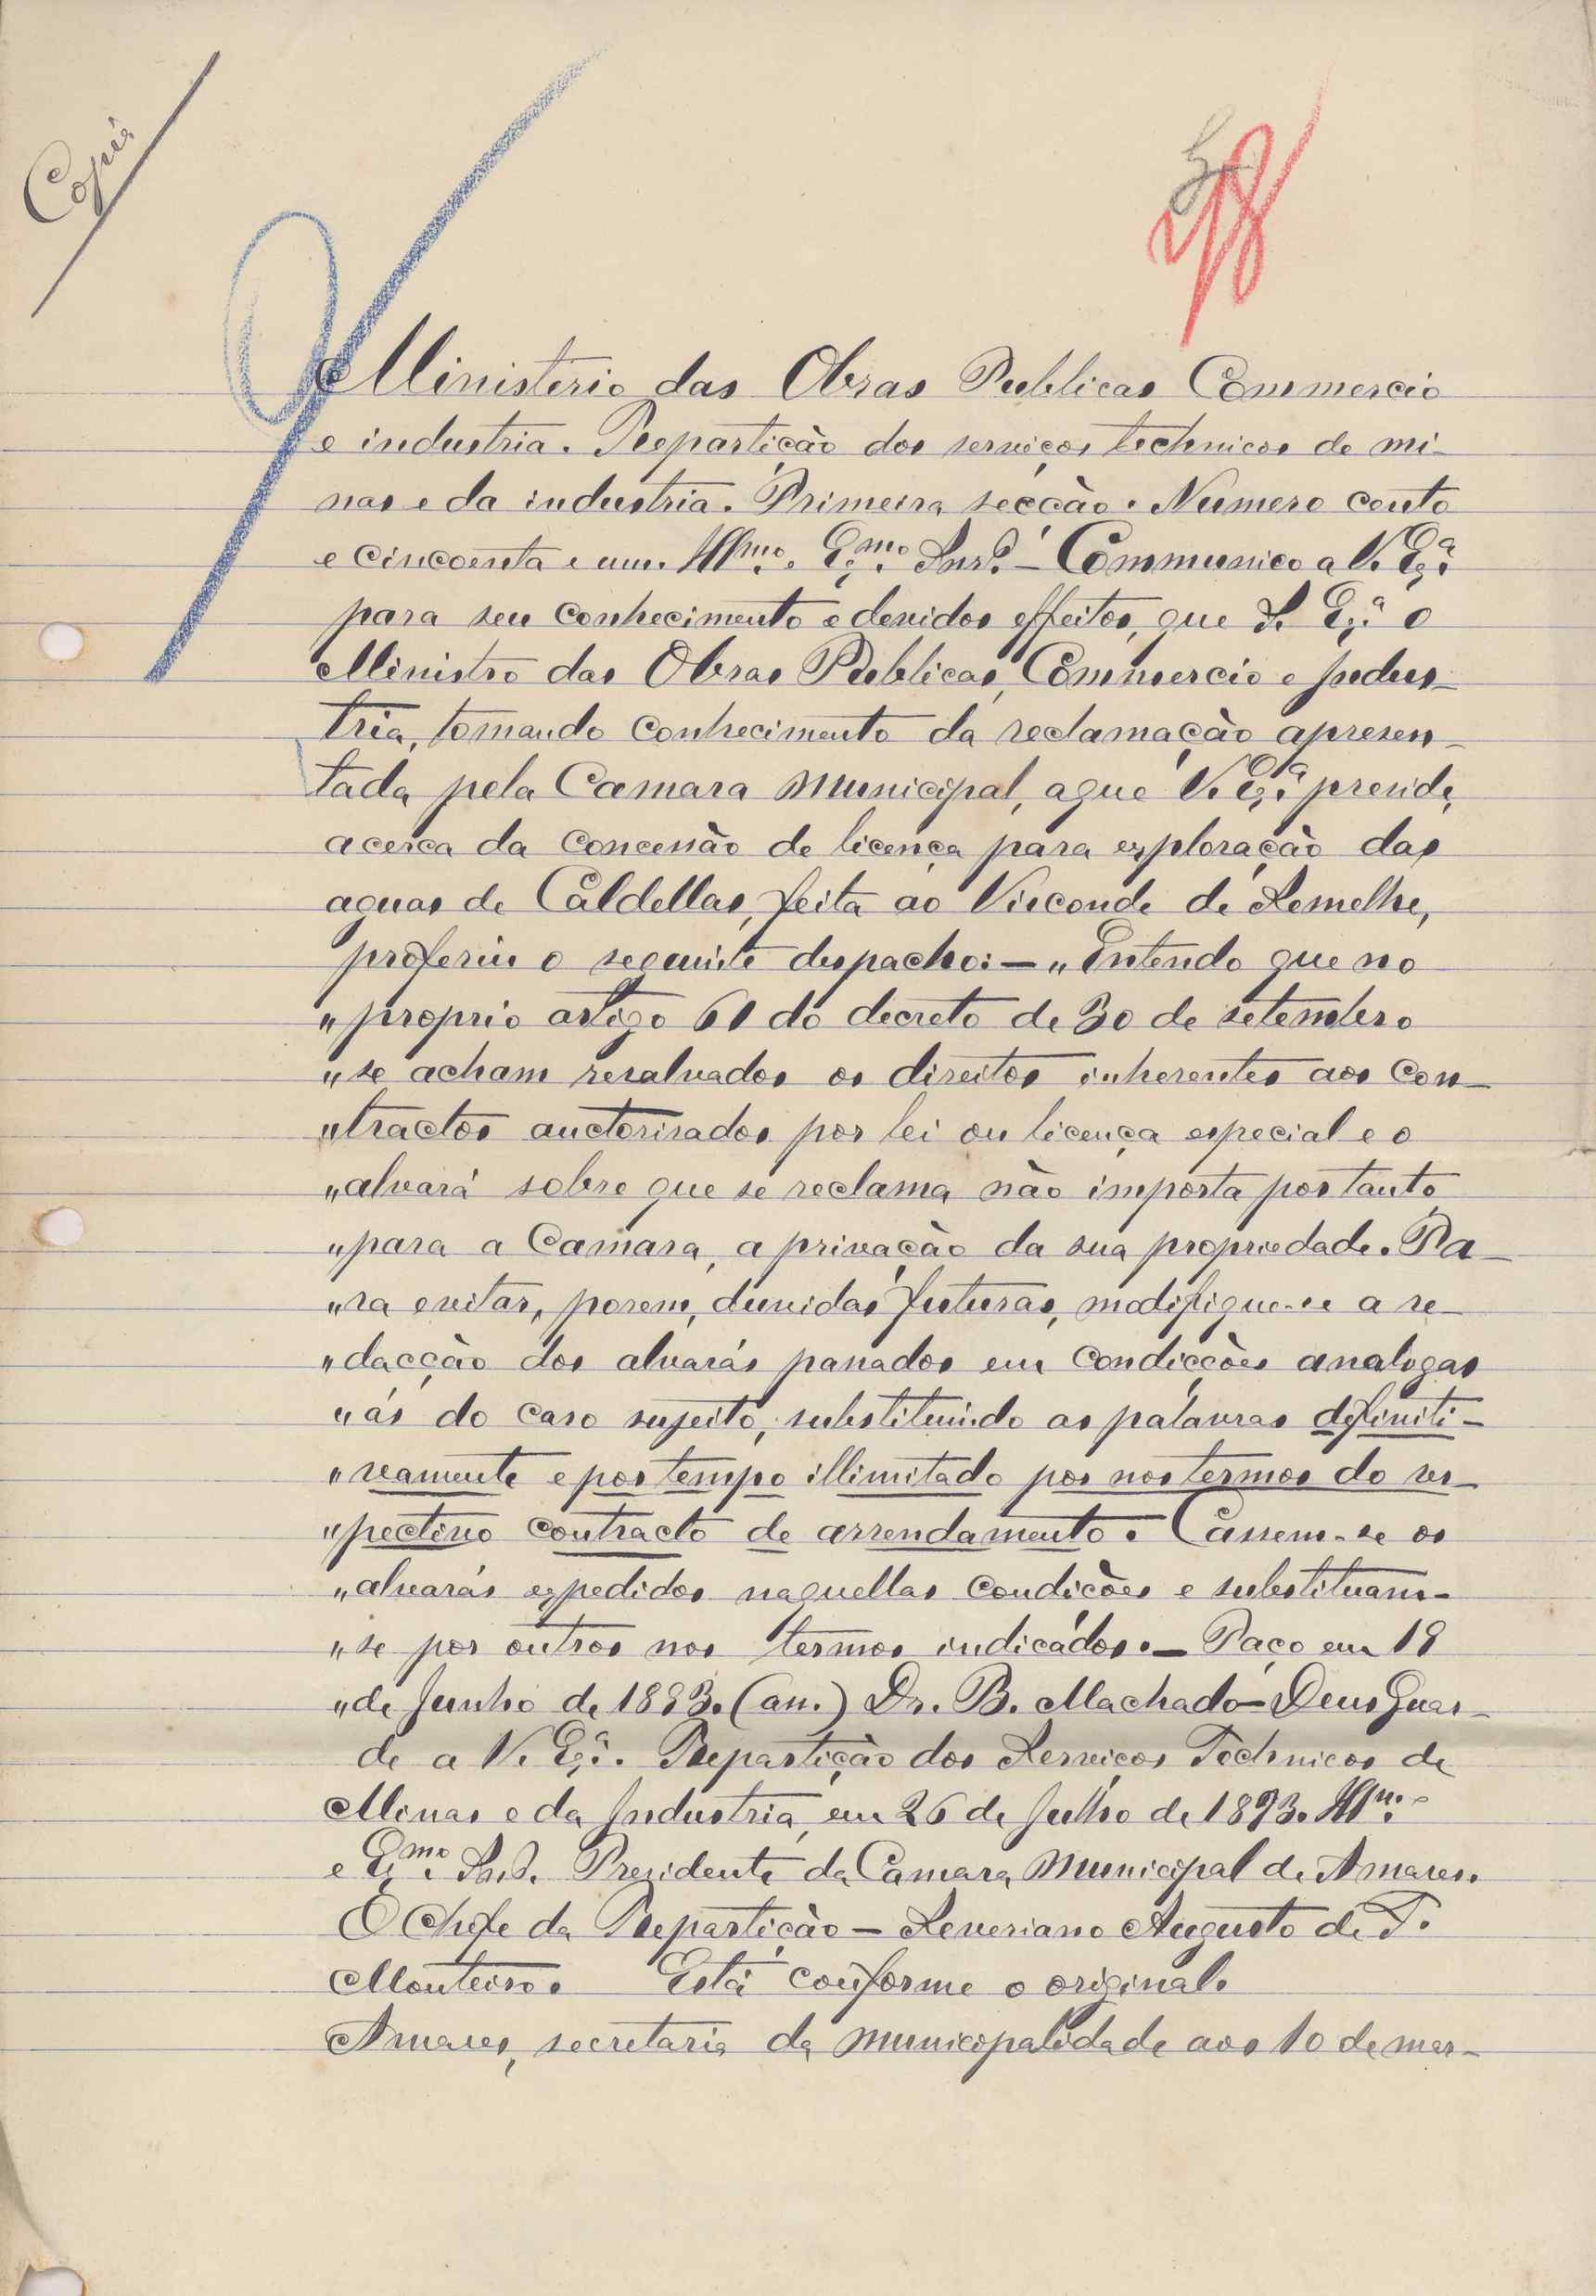 Copia
Ministerio das Obras Publicas Commercio
e industria. Repartição dos serviços technicos de mi-
nas e da industria. Primeira secção. Numero cento
e cincoenta e um. Illmo. e Exmo. Snr. - Communico a V. Exa.
para seu conhecimento e devidos effeitos, que S. Exa. o
Ministro das Obras Publicas, Commercio e Indus-
tria, tomando conhecimento da reclamação apresen-
tada pela Camara Municipal, a que V. Exa. preside,
acerca da concessão de licença para exploração das
aguas de Caldellas, feita ao Visconde de Semelhe,
proferiu o seguinte despacho: — „Entendo que no
„proprio artigo 61 do decreto de 30 de setembro
„se acham resalvados os direitos inherentes aos con-
„tractos auctorisados por lei ou licença especial e o
„alvará sobre que se reclama não importa portanto
„para a Camara, a privação da sua propriedade. Pa-
„ra evitar, porem, duvidas futuras, modifique-se a re-
„dacção dos alvarás passados em condicções analogas
„ás do caso sujeito, substituindo as palavras definiti-
„vamente e por tempo illimitado por nos termos do res-
„pectivo contracto de arrendamento. Cassem-se os
„alvarás expedidos naquellas condições e substituam-
„se por outros nos termos indicados. — Paço em 18
„de Junho de 1893. (ass.) Dr. B. Machado — Deus Guar-
de a V. Exa. Repartição dos Serviços Technicos de
Minas e da Industria, em 26 de Julho de 1893. Illmo.
e Exmo. Snr. Presidente da Camara Municipal de Amares.
O Chefe da Repartição — Severiano Augusto da F.
Monteiro. Está conforme o original.
Amares, secretaria da municipalidade aos 10 de mar-